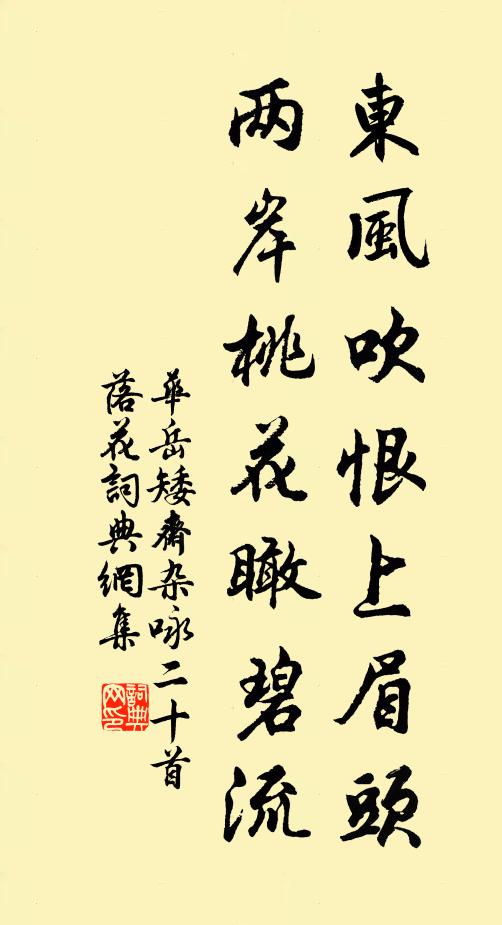 東風吹恨上眉頭
两岸桃花瞰碧流
華岳矮齋杂咏二十首
落花詞典網集
詞典网印